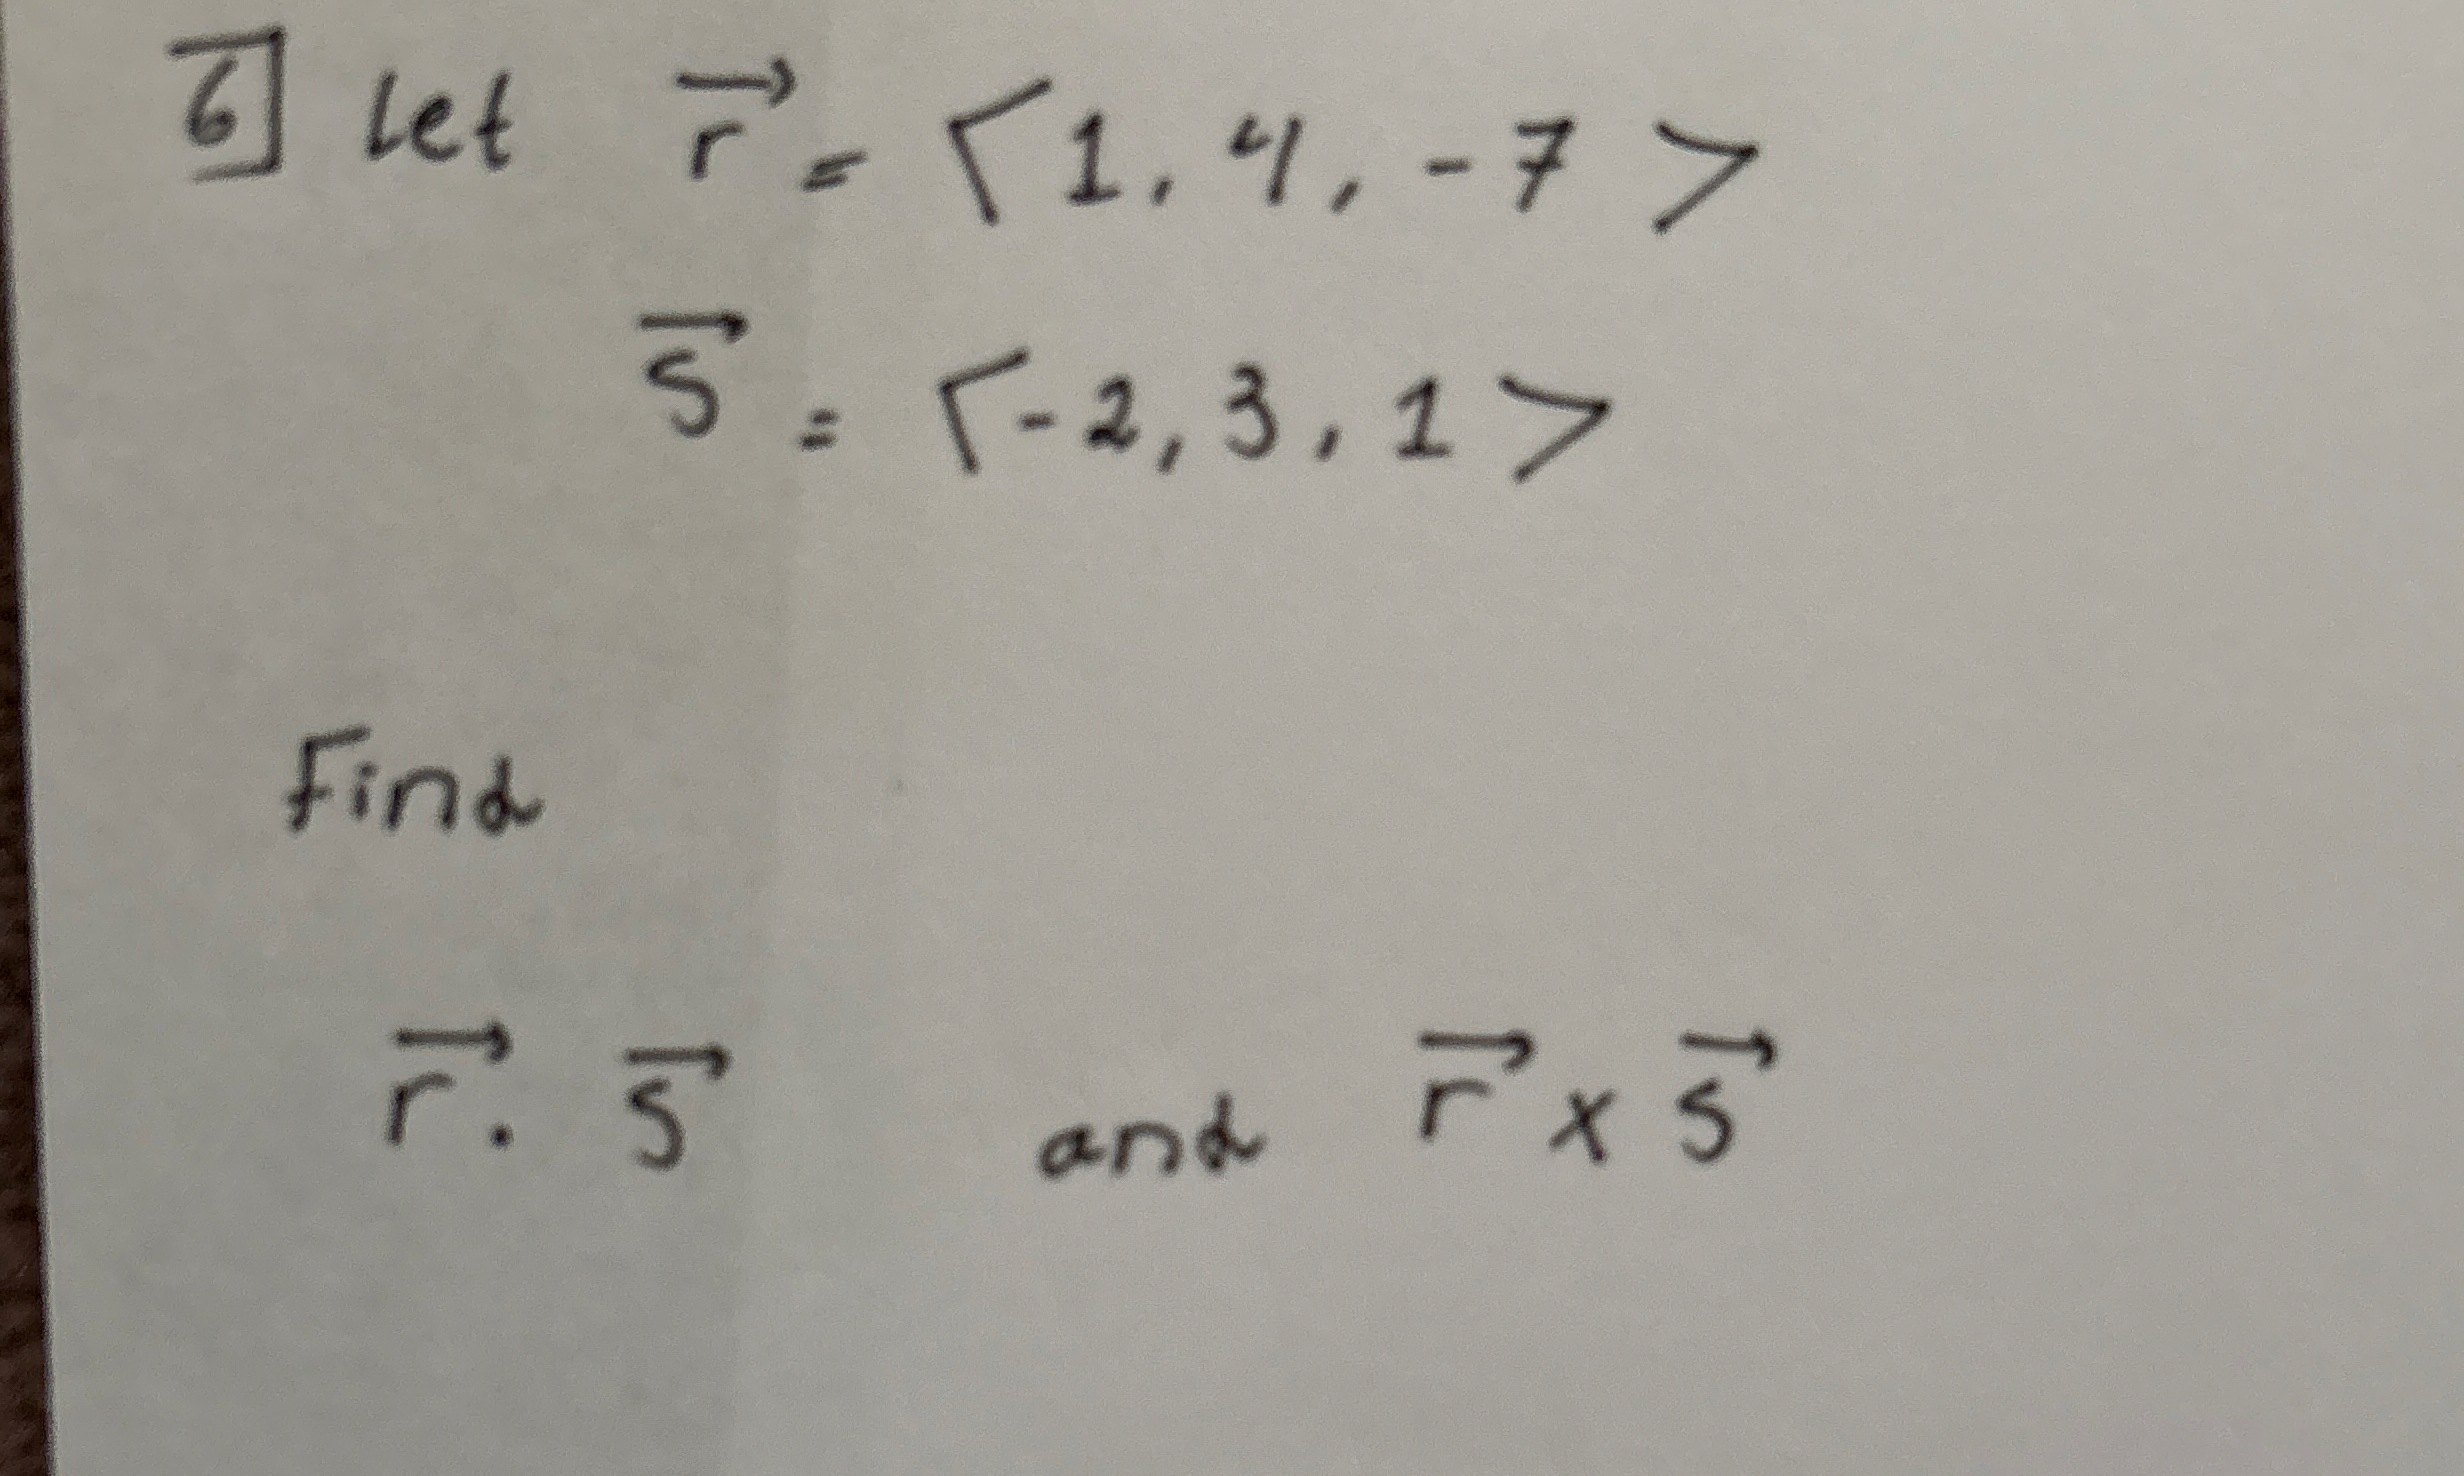 6] Let r⃗ = <1, 4, -7>
s⃗ = <-2, 3, 1>
Find
r⃗ . s⃗ and r⃗ x s⃗